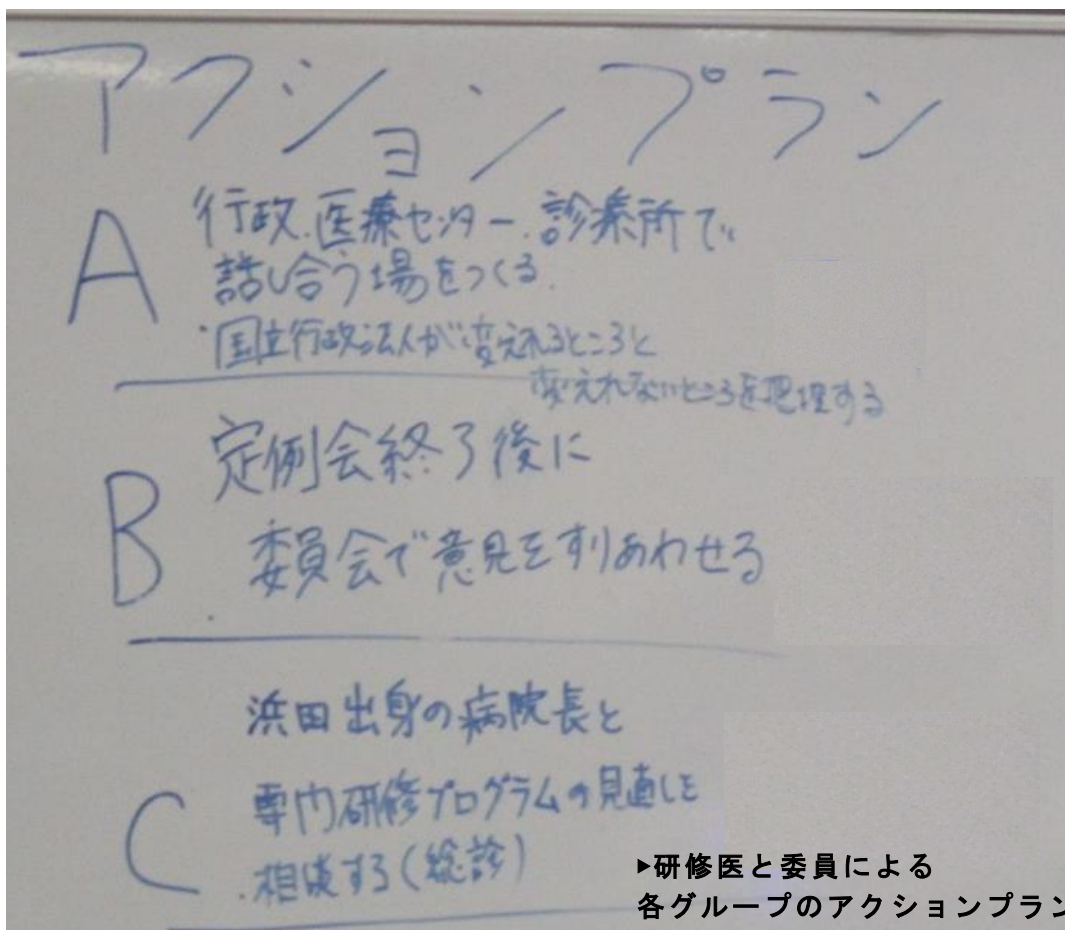 アクションプラン
A 行政.医療センター.診療所で
話し合う場をつくる.
・国立行政法人が変えれるところと
変えれないところを把握する
B 定例会終了後に
委員会で意見をすりあわせる
浜田出身の病院長と
C 専門研修プログラムの見直しを
相談する(総診)
▶研修医と委員による
各グループのアクションプラン